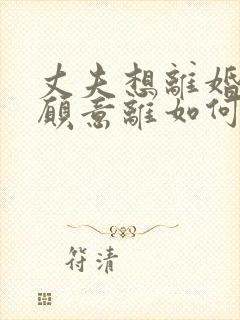 丈夫想離婚
願意離如何
符清